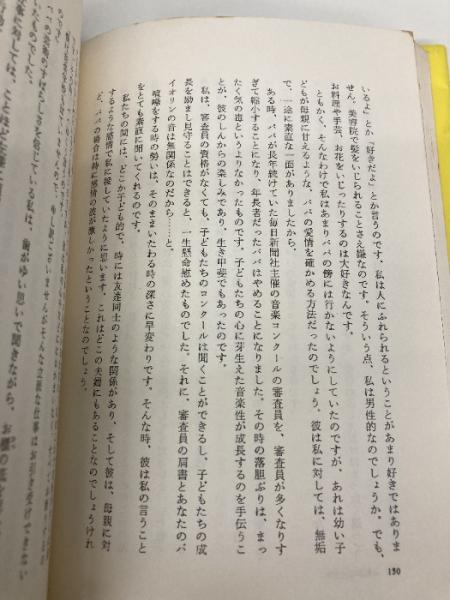 いるよ」とか「好きだよ」とか言うのです。私は人にふれられるということがあまり好きではありま
せん。美容院で髪をいじられることさえ嫌なのです。そういう点、私は男性的なのでしょうか。でも、
お料理や手芸、お花をいじったりするのは大好きなんです。
ともかく、そんなわけで私はあまりパパの傍には行かないようにしていたのですが、あれは幼い子
どもが母親に甘えるような、パパの愛情を確かめる方法だったのでしょう。彼は私に対しては、無垢
で、一途に素直な一面がありましたから。
ある時、パパが長年続けていた毎日新聞社主催の音楽コンクールの審査員を、審査員が多くなりす
ぎて縮小することになり、年長者だったパパはやめることになりました。その時の落胆ぶりは、まっ
たく気の毒というよりなかったものです。子どもたちの心に芽生えた音楽性が成長するのを手伝うこ
とが、彼のしんからの楽しみであり、生き甲斐でもあったのです。
私は、審査員の資格がなくても、子どもたちのコンクールは聞くことができるし、子どもたちの成
長を励まし見守ることはできると、一生懸命慰めたものでした。それに、審査員の肩書とあなたのバ
イオリンの音は無関係なのだから……と。
喧嘩をする時の勢いは、そのままいたわる時の深さに早変わりです。そんな時、彼は私の言うこと
をとても素直に聞いてくれるのです。
私たちの間には、どこか子ども的で、時には友達同士のような関係があり、そして彼は、母親に対
するような感情で私に接していたように思います。これはどこの夫婦にもあることなのでしょうけれ
ど、パパの場合は特に感情の波が激しかったということなのでしょう。
130